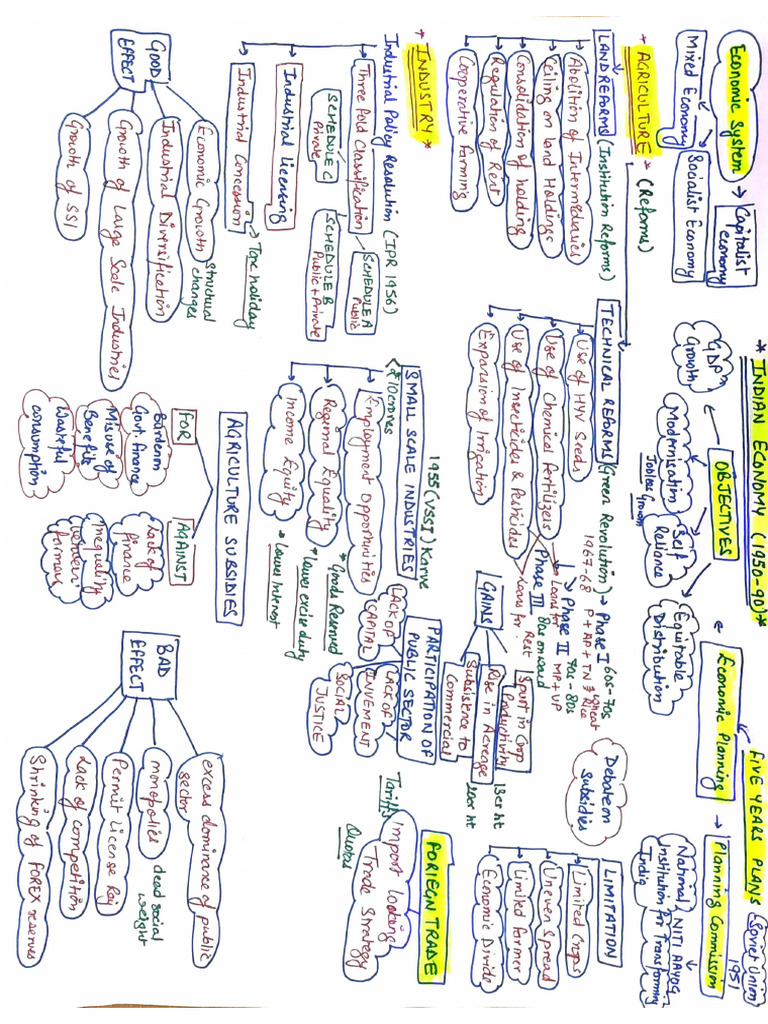 * INDIAN ECONOMY (1950-90) *
FIVE YEARS PLANS
Soviet Union
1951
Economic System
→ Capitalist
economy
Mixed Economy
Socialist Economy
OBJECTIVES
GDP
Growth
Modernisation
Jobless Growth
Self
Reliance
Equitable
Distribution
Economic Planning
→ Planning Commission
NITI AAYOG
National
Institution for Transforming
India
* AGRICULTURE * (Reforms)
LAND REFORMS (Institution Reforms)
Abolition of Intermediaries
Ceiling on land Holdings
Consolidation of holding
Regulation of Rent
Cooperative farming
TECHNICAL REFORMS (Green Revolution) → Phase I 60s-70s
1967-68 P + AP + TN } Wheat
Rice
Use of HYV Seeds
Use of Chemical Fertilizers
Use of Insecticides & Pesticides
Expansion of Irrigation
→ Phase II 70s-80s
Loans for MP + UP
Phase III 80s onward
Loans for. Rest
GAINS
Spurt in Crop
Productivity
Rise in Acreage
Subsistence to
Commercial
Debate on
Subsidies
LIMITATION
Limited Crops
Uneven Spread
Limited farmer
Economic Divide
* INDUSTRY *
Industrial Policy Resolution (IPR 1956)
Three fold Classification
SCHEDULE A
Public
SCHEDULE B
Public + Private
SCHEDULE C
Private
Industrial Licensing
Industrial Concession
→ Tax holiday
1955 (VSSI) Karve
SMALL SCALE INDUSTRIES
< ₹10 crores
Employment Opportunities
Regional Equality
Income Equity
* Goods Reserved
* Lower excise duty
* Lower Interest
PARTICIPATION OF
PUBLIC SECTOR
LACK OF
CAPITAL
LACK OF
INVEMENT
SOCIAL
JUSTICE
FORIEGN TRADE
Import looking
Trade Strategy
Tariffs
Quotas
GOOD
EFFECT
Economic Growth
structural
changes
Industrial Diversification
Growth of Large Scale Industries
Growth of SSI
AGRICULTURE SUBSIDIES
FOR
Burden on
Govt. finance
Misuse of
Benefits
Wasteful
consumption
AGAINST
Lack of
finance
Inequality
between
farmers
BAD
EFFECT
excess dominance of public
sector
monopolies
dead social
weight
Permit License Raj
Lack of competition
Shrinking of FOREX reserves